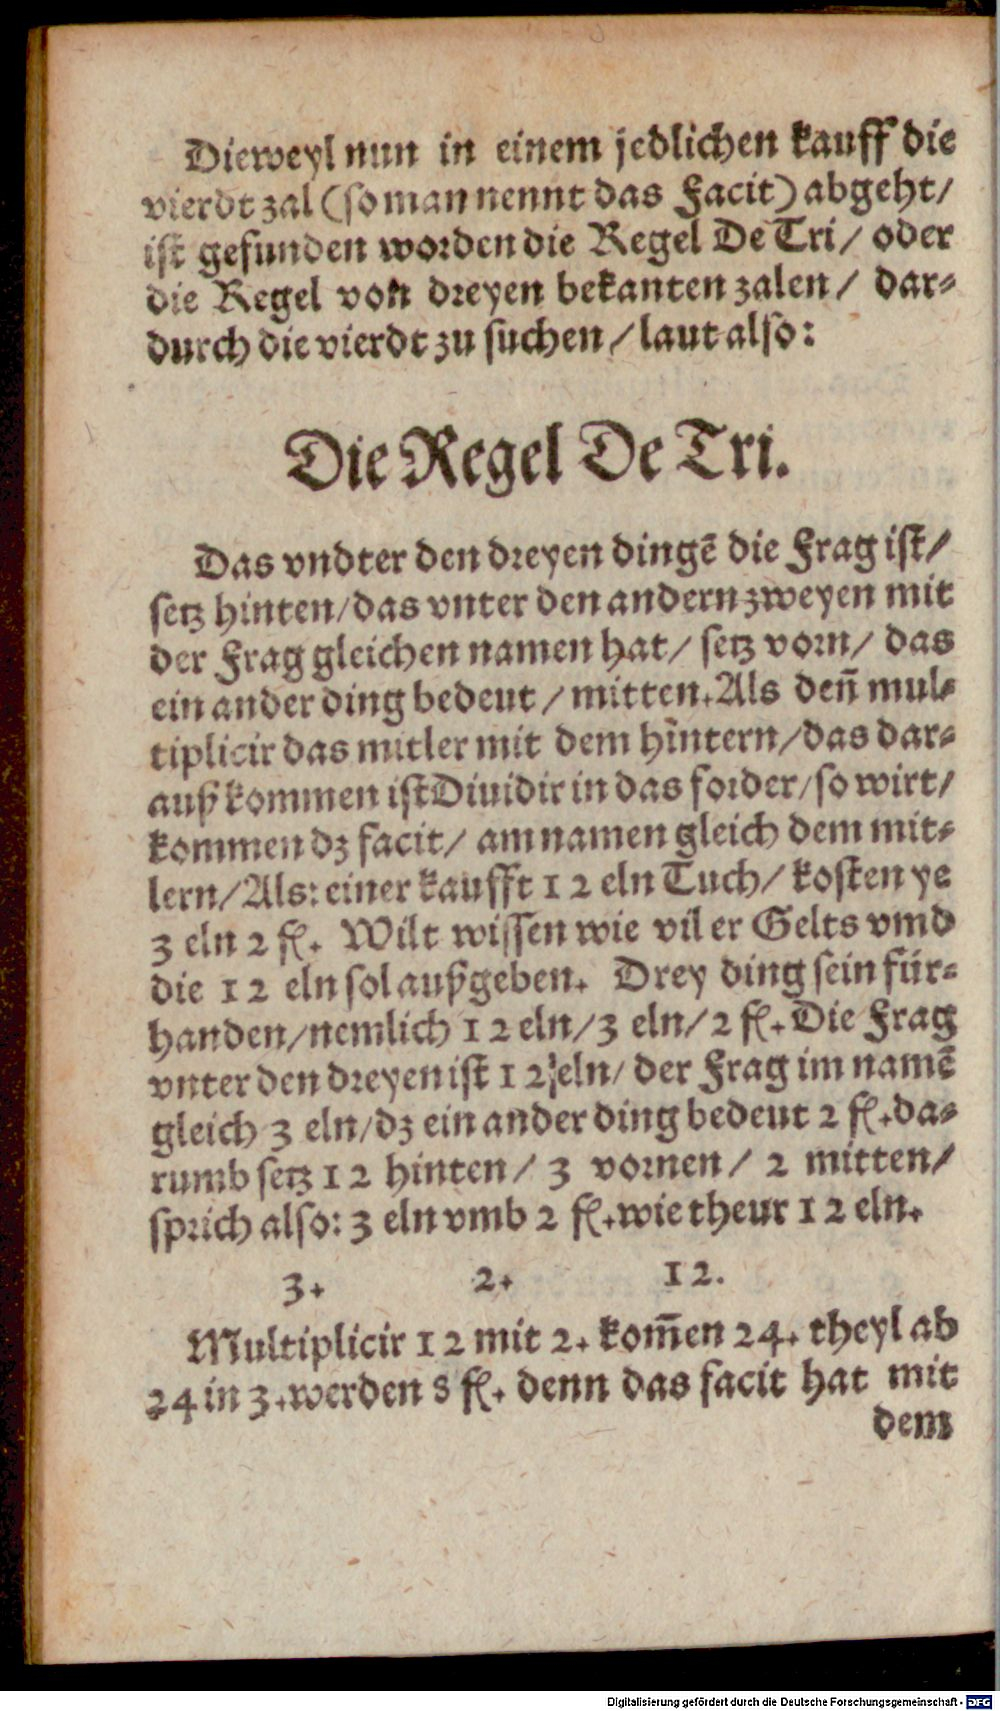 Dieweyl nun in einem jedlichen kauff die
vierdt zal (so man nennt das Facit) abgeht/
ist gefunden worden die Regel De Tri/ oder
die Regel von dreyen bekanten zalen/ dar-
durch die vierdt zu suchen/ laut also:
Die Regel De Tri.
Das vndter den dreyen dingē die Frag ist/
setz hinten/das vnter den andern zweyen mit
der Frag gleichen namen hat/ setz vorn/ das
ein ander ding bedeut/ mitten. Als deñ mul-
tiplicir das mitler mit dem hintern/das dar-
auß kommen ist Diuidir in das forder/so wirt/
kommen dz facit/ am namen gleich dem mit-
lern/Als: einer kaufft 12 eln Tuch/ kosten ye
3 eln 2 fl. Wilt wissen wie vil er Gelts vmb
die 12 eln sol außgeben. Drey ding sein für-
handen/nemlich 12 eln/3 eln/2 fl. Die Frag
vnter den dreyen ist 12 eln/ der Frag im namē
gleich 3 eln/dz ein ander ding bedeut 2 fl. da-
rumb setz 12 hinten/ 3 vornen/ 2 mitten/
sprich also: 3 eln vmb 2 fl. wie theur 12 eln.
3. 2. 12.
Multiplicir 12 mit 2. kom̄en 24. theyl ab
24 in 3. werden 8 fl. denn das facit hat mit
dem
Digitalisierung gefördert durch die Deutsche Forschungsgemeinschaft - DFG